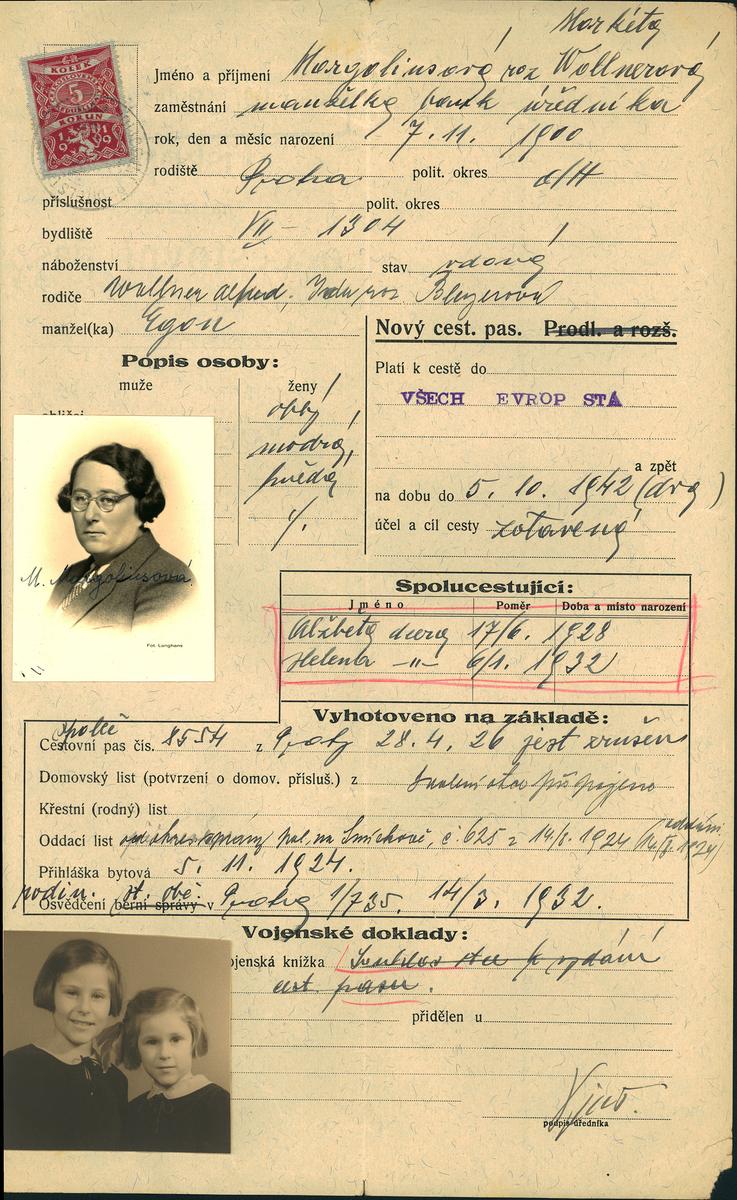 Markéta
KOLEK
5
KORUN
1919
Jméno a příjmení Margoliusová roz Wollnerová
zaměstnání manželka bank úředníka
rok, den a měsíc narození 7. 11. 1900
rodiště Praha polit. okres d/H
příslušnost polit. okres
bydliště VII - 1304
náboženství stav vdová
rodiče Wollner Alfred, Ida roz
manžel(ka) Egon
Nový cest. pas. Prodl. a rozš.
Popis osoby:
muže ženy
Platí k cestě do
VŠECH EVROP STÁ
modrá
hnědá
a zpět
na dobu do 5. 10. 1942 (dva)
účel a cíl cesty zotavená
M. Margoliusová
Fot. Langhans
Spolucestující:
Jméno Poměr Doba a místo narození
Alžběta dcera 17/6. 1928
Helena -"- 6/1. 1932
Vyhotoveno na základě:
společ
Cestovní pas čís. 8554 z Prahy 28. 4. 26 jest zrušen
Domovský list (potvrzení o domov. přísluš.) z
Křestní (rodný) list
Oddací list pol. na Smíchově, č. 625 z 14/8. 1924
Přihláška bytová 5. 11. 1924.
Osvědčení berní správy v Praha 1/735. 14/3. 1932.
Vojenské doklady:
ojenská knížka k vydání
cest. pasu.
přidělen u
podpis úředníka